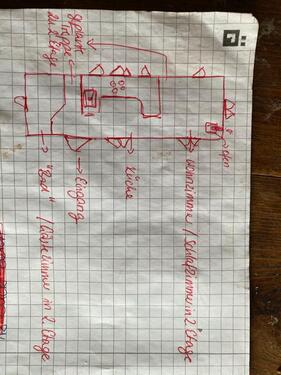 geplant
Treppe
in 2. Etage
Ofen
Wohnzimmer / Schlafzimmer in 2. Etage
Küche
Eingang
"Bad" / Gästezimmer in 2. Etage